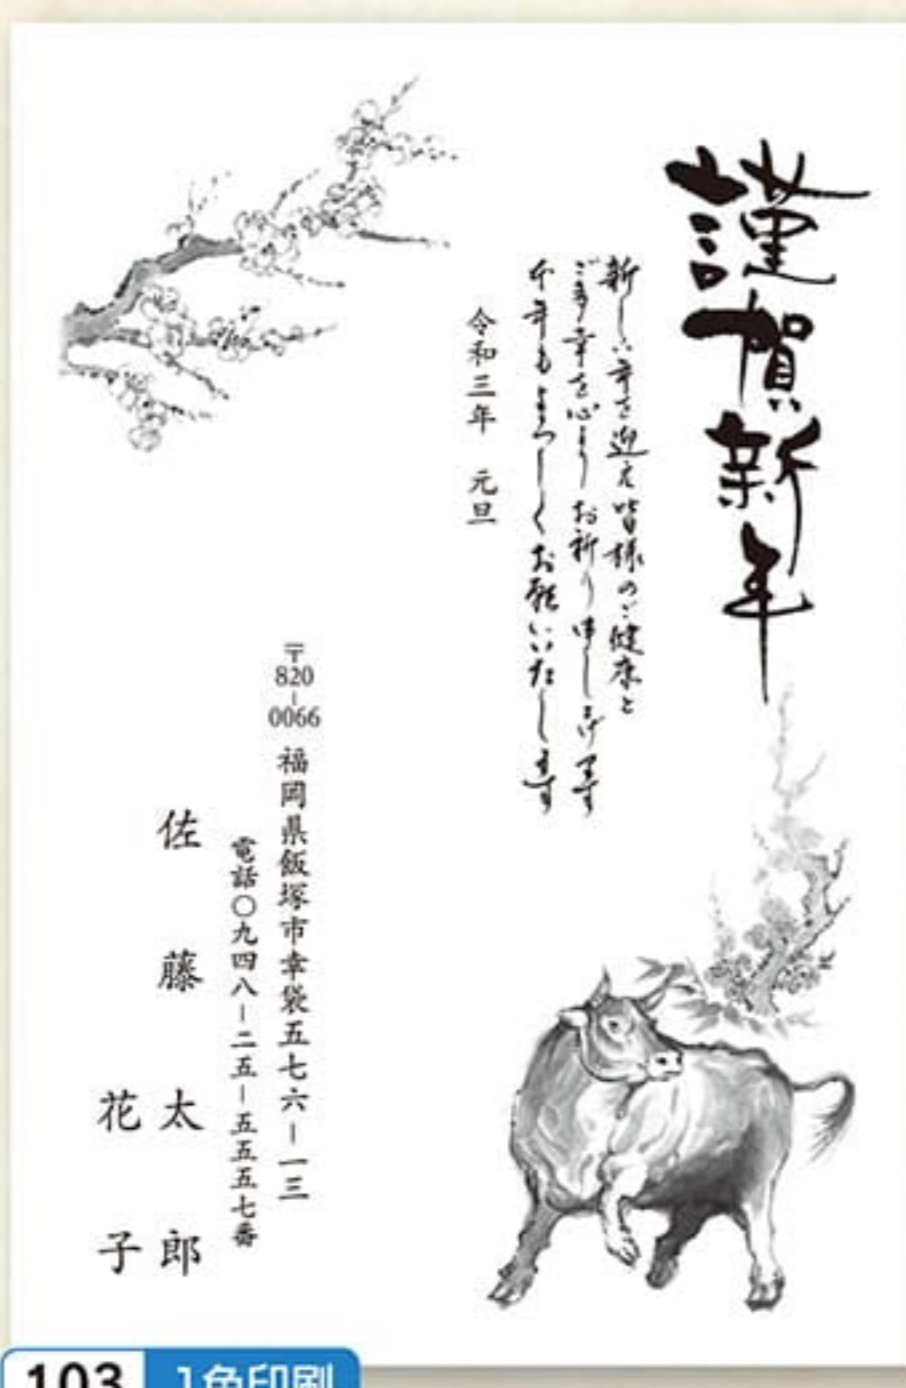 謹賀新年
新しい年を迎え皆様のご健康と
ご多幸を心よりお祈り申し上げます
本年もよろしくお願いいたします
令和三年 元旦
〒820-0066 福岡県飯塚市幸袋五七六-一三
電話〇九四八-二五-五五五七番
佐藤太郎
花子
103 1色印刷